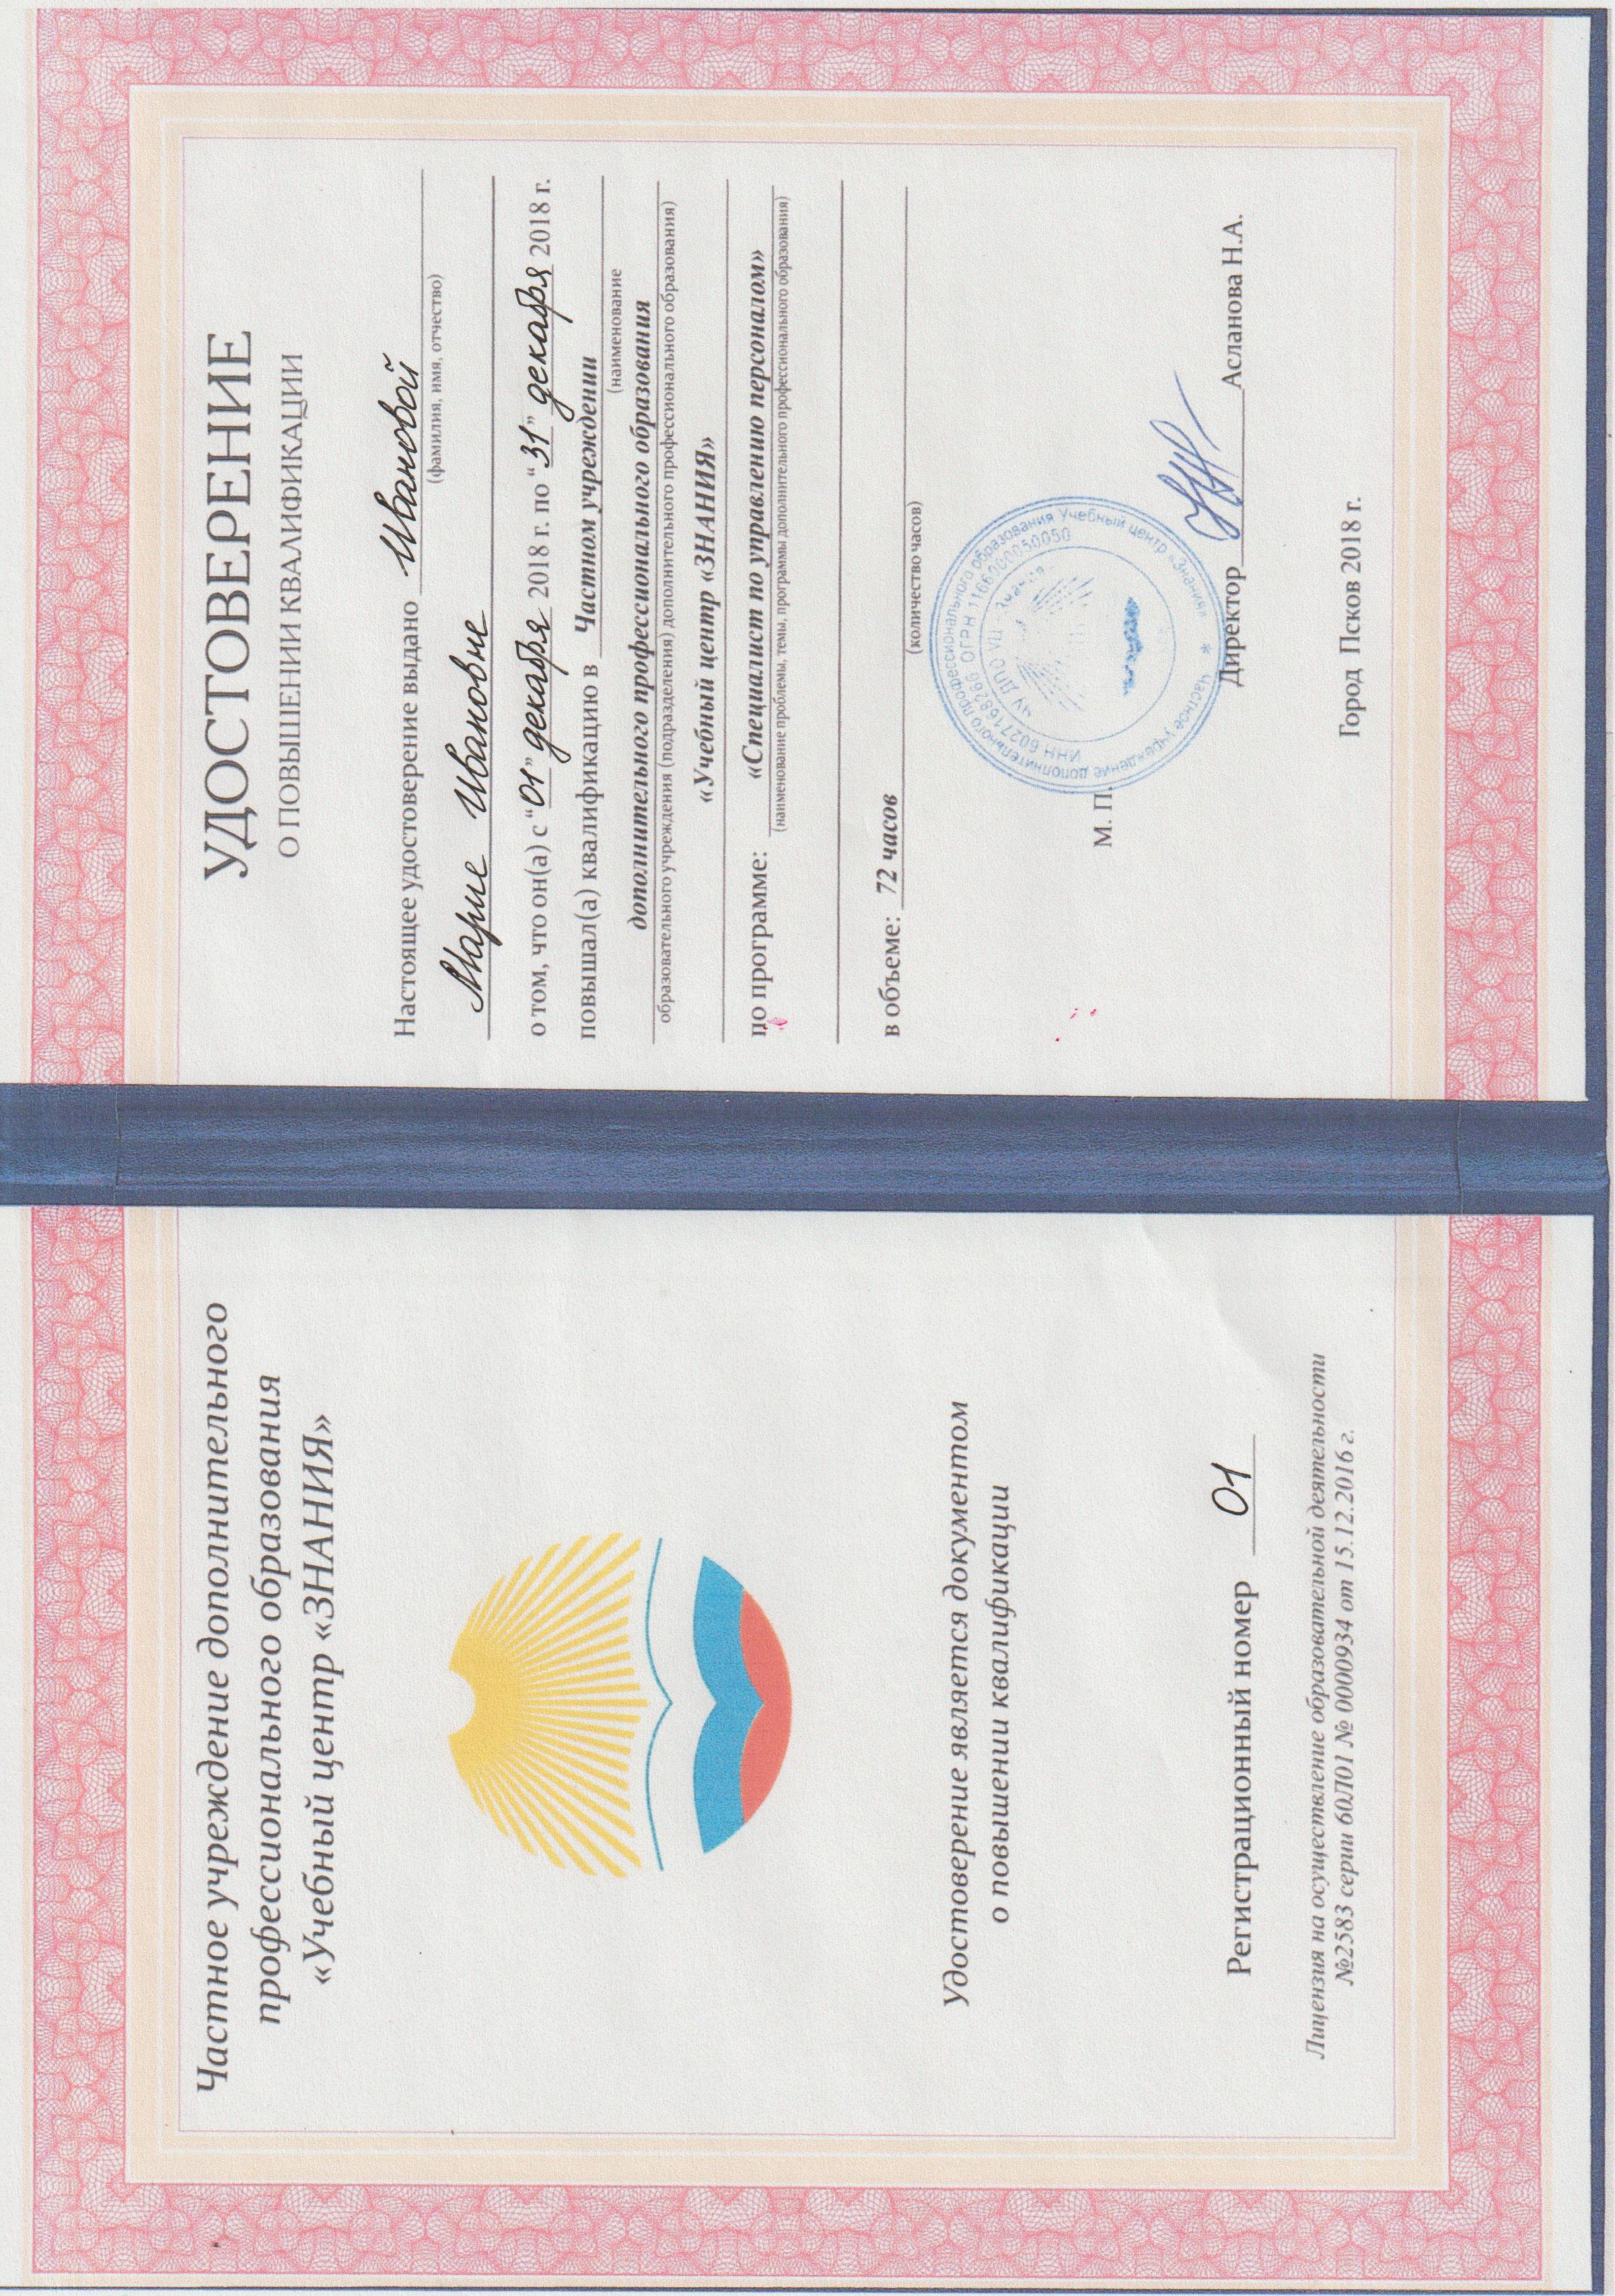 Частное учреждение дополнительного
профессионального образования
«Учебный центр «ЗНАНИЯ»
Удостоверение является документом
о повышении квалификации
Регистрационный номер 01
Лицензия на осуществление образовательной деятельности
№2583 серии 60Л01 № 0000934 от 15.12.2016 г.
УДОСТОВЕРЕНИЕ
О ПОВЫШЕНИИ КВАЛИФИКАЦИИ
Настоящее удостоверение выдано Ивановой
(фамилия, имя, отчество)
Марие Ивановне
о том, что он(а) с "01" декабря 2018 г. по "31" декабря 2018 г.
повышал(а) квалификацию в Частном учреждении
(наименование
дополнительного профессионального образования
образовательного учреждения (подразделения) дополнительного профессионального образования)
«Учебный центр «ЗНАНИЯ»
по программе: «Специалист по управлению персоналом»
(наименование проблемы, темы, программы дополнительного профессионального образования)
в объеме: 72 часов
(количество часов)
Частное учреждение дополнительного профессионального образования Учебный центр «Знания» *
ИНН 6027168266 ОГРН 1166000050050
ЧУ ДПО УЦ «Знания»
М. П.
Директор Асланова Н.А.
Город Псков 2018 г.